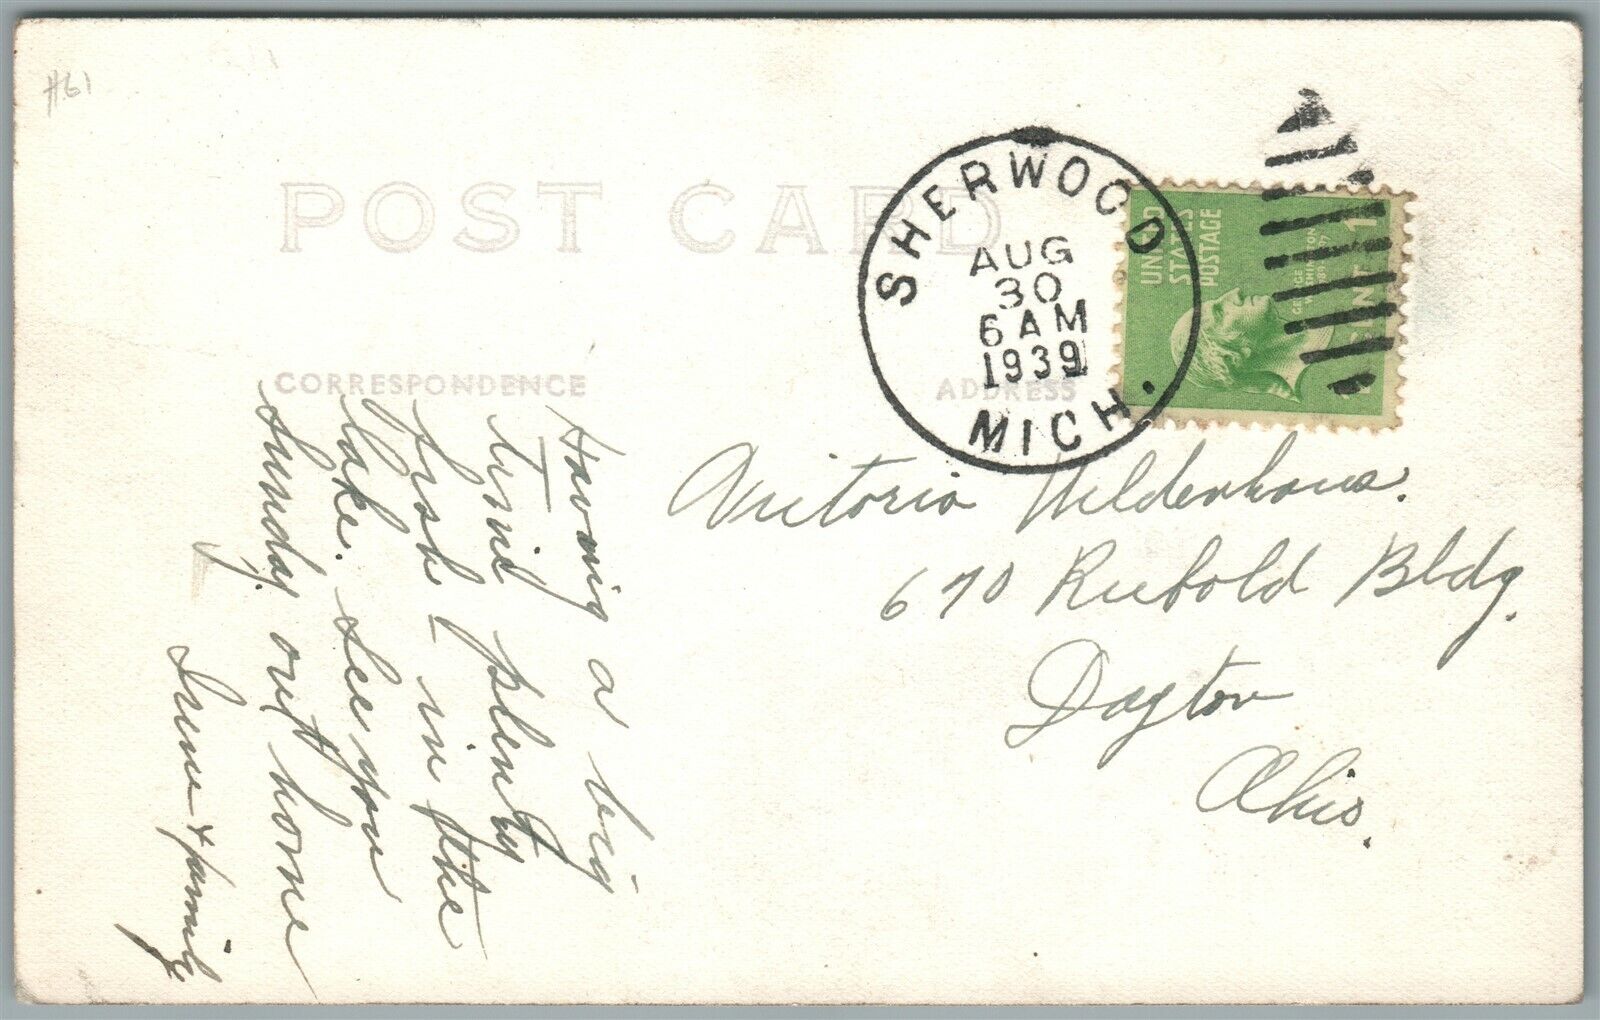 #61
POST CARD
CORRESPONDENCE
ADDRESS
SHERWOOD
AUG
30
6 AM
1939
MICH.
UNITED
STATES
POSTAGE
GEORGE
WASHINGTON
1 CENT 1
Having a big
time plenty
fish - in the
lake. See you
Sunday out home
Irene & family
Victoria Wildenhaus.
670 Reibold Bldg.
Dayton
Ohio.